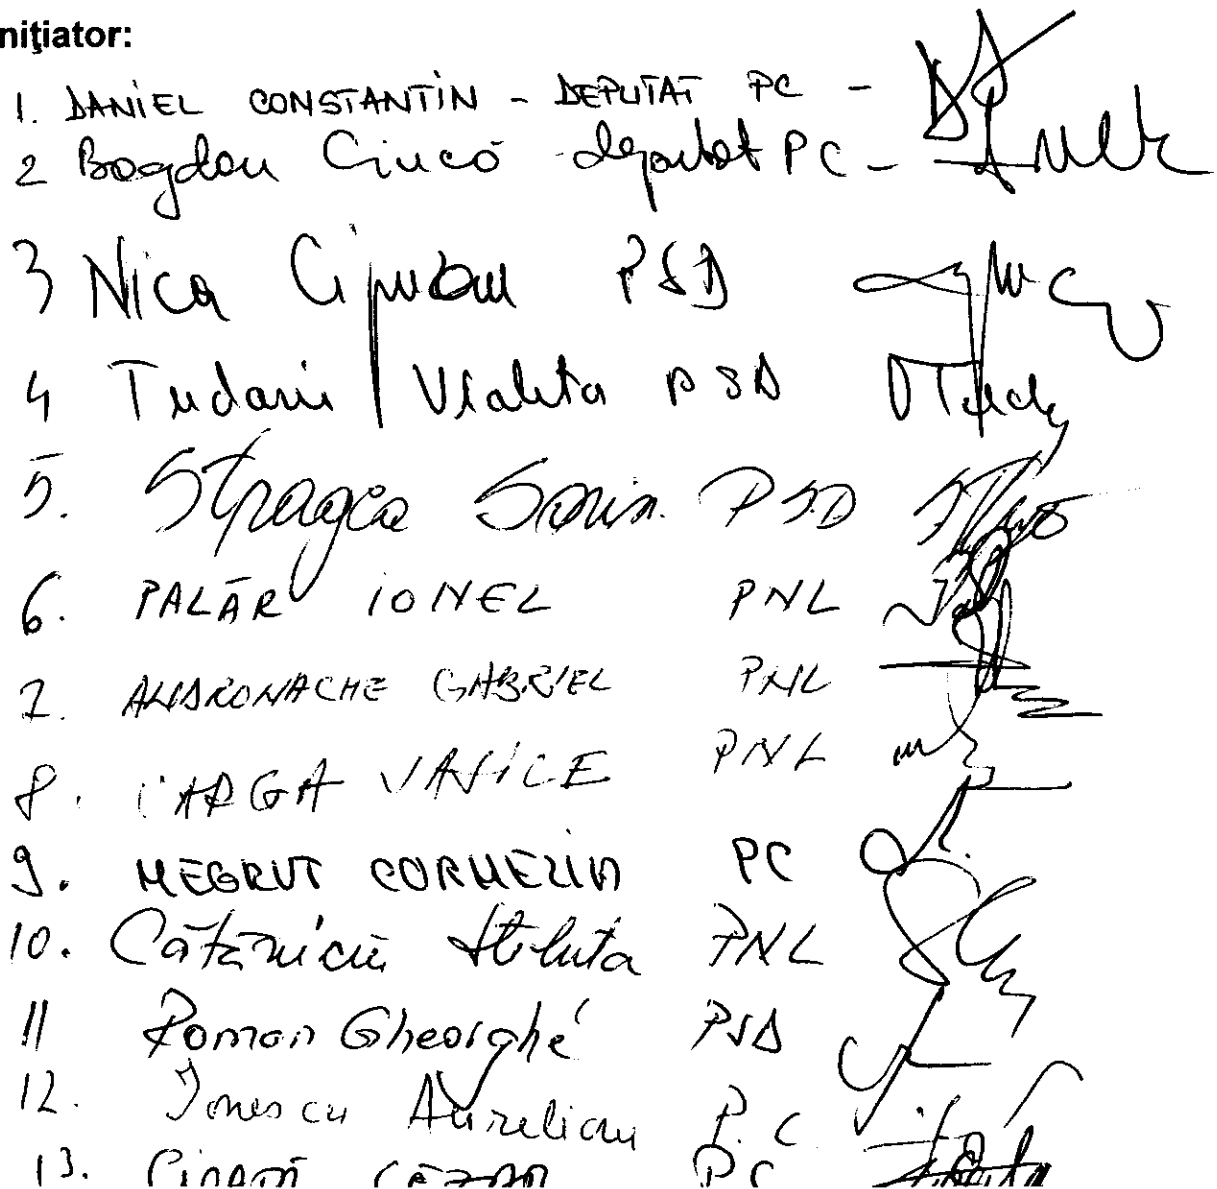 nițiator:
1. DANIEL CONSTANTIN - DEPUTAT PC -
2 Bogdan Ciucă - deputat PC -
3 Nica Ciprian PSD
4 Tudorie Violeta PSD
5. Stragea Sorin. PSD
6. PALĂR IONEL PNL
7. ANDRONACHE GABRIEL PNL
8. VARGA VASILE PNL
9. NEGRUT CORNELIA PC
10. Cătăniciu Steluta PNL
11 Roman Gheorghe PSD
12. Ionescu Aurelian P.C
13. PC